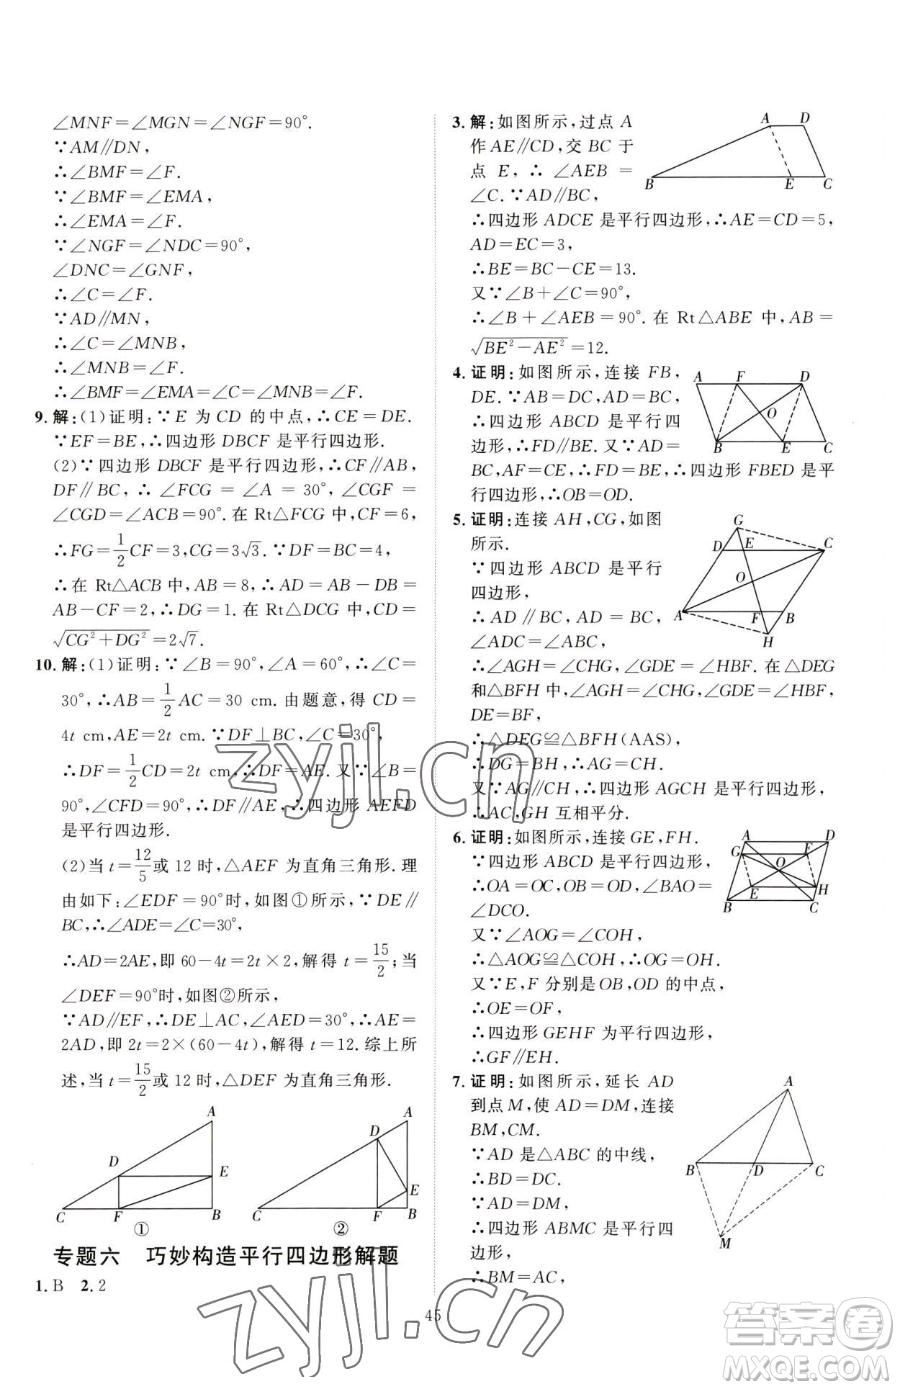 ∠MNF=∠MGN=∠NGF=90°.
∵AM∥DN,
∴∠BMF=∠F.
∵∠BMF=∠EMA,
∴∠EMA=∠F.
∵∠NGF=∠NDC=90°,
∠DNC=∠GNF,
∴∠C=∠F.
∵AD∥MN,
∴∠C=∠MNB,
∴∠MNB=∠F.
∴∠BMF=∠EMA=∠C=∠MNB=∠F.
9.解:(1)证明:∵E 为 CD 的中点,∴CE=DE.
∵EF=BE,∴四边形 DBCF 是平行四边形.
(2)∵四边形 DBCF 是平行四边形,∴CF∥AB,
DF∥BC,∴∠FCG=∠A=30°,∠CGF=
∠CGD=∠ACB=90°.在 Rt△FCG 中,CF=6,
∴FG=1/2CF=3,CG=3√3.∵DF=BC=4,
∴在 Rt△ACB 中,AB=8,∴AD=AB-DB=
AB-CF=2,∴DG=1.在 Rt△DCG 中,CD=
√(CG²+DG²)=2√7.
10.解:(1)证明:∵∠B=90°,∠A=60°,∴∠C=
30°,∴AB=1/2AC=30 cm.由题意,得 CD=
4t cm,AE=2t cm.∵DF⊥BC,∠C=30°,
∴DF=1/2CD=2t cm,∴DF=AE.又∵∠B=
90°,∠CFD=90°,∴DF∥AE,∴四边形 AEFD
是平行四边形.
(2)当 t=12/5或 12 时,△AEF 为直角三角形.理
由如下:∠EDF=90°时,如图①所示,∵DE∥
BC,∴∠ADE=∠C=30°,
∴AD=2AE,即 60-4t=2t×2,解得 t=15/2;当
∠DEF=90°时,如图②所示,
∵AD∥EF,∴DE⊥AC,∠AED=30°,∴AE=
2AD,即 2t=2×(60-4t),解得 t=12.综上所
述,当 t=15/2或 12 时,△DEF 为直角三角形.
A
D
E
C
F
B
①
A
D
E
C
F
B
②
专题六 巧妙构造平行四边形解题
1.B 2.2
3.解:如图所示,过点 A
作 AE∥CD,交 BC 于
点 E,∴∠AEB=
∠C.∵AD∥BC,
∴四边形 ADCE 是平行四边形,∴AE=CD=5,
AD=EC=3,
∴BE=BC-CE=13.
又∵∠B+∠C=90°,
∴∠B+∠AEB=90°.在 Rt△ABE 中,AB=
√(BE²-AE²)=12.
A
D
B
E
C
4.证明:如图所示,连接 FB,
DE.∵AF=CE,AD=
BC,∴DF=BE.∵四
边形 ABCD 是平行四
边形,∴FD∥BE.又∵AD=
BC,AF=CE,∴四边形 FBED 是平
行四边形,∴OB=OD.
A
F
D
O
B
E
C
5.证明:连接 AH,CG,如图
所示.
∵四边形 ABCD 是平行
四边形,
∴AD∥BC,∴∠DAC=
∠ACB,
∴∠AGH=∠CHG.在△DEG
和△BFH 中,∠AGH=∠CHG,∠DEG=∠BFH,
DE=BF,
∴△DEG≌△BFH(AAS),
∴DG=BH,∴AG=CH.
又∵AG∥CH,∴四边形 AGCH 是平行四边形,
∴AC,GH 互相平分.
G
D
E
C
O
A
F
B
H
6.证明:如图所示,连接 GE,FH.
∵四边形 ABCD 是平行四边形,
∴OA=OC,OB=OD,∠BAO=
∠DCO.
又∵∠AOG=∠COH,
∴△AOG≌△COH,∴OG=OH.
又∵E,F 分别是 OB,OD 的中点,
∴OE=OF.
∴四边形 GEHF 为平行四边形,
∴GF∥EH.
A
D
G
F
O
E
H
B
C
7.证明:如图所示,延长 AD
到点 M,使 AD=DM,连接
BM,CM.
∵AD 是△ABC 的中线,
∴BD=DC.
∵AD=DM,
∴四边形 ABMC 是平行
四边形,
∴BM=AC,
A
B
D
C
M
45
zyjl.cn
zyjl.cn
答案圈
MXQE.COM